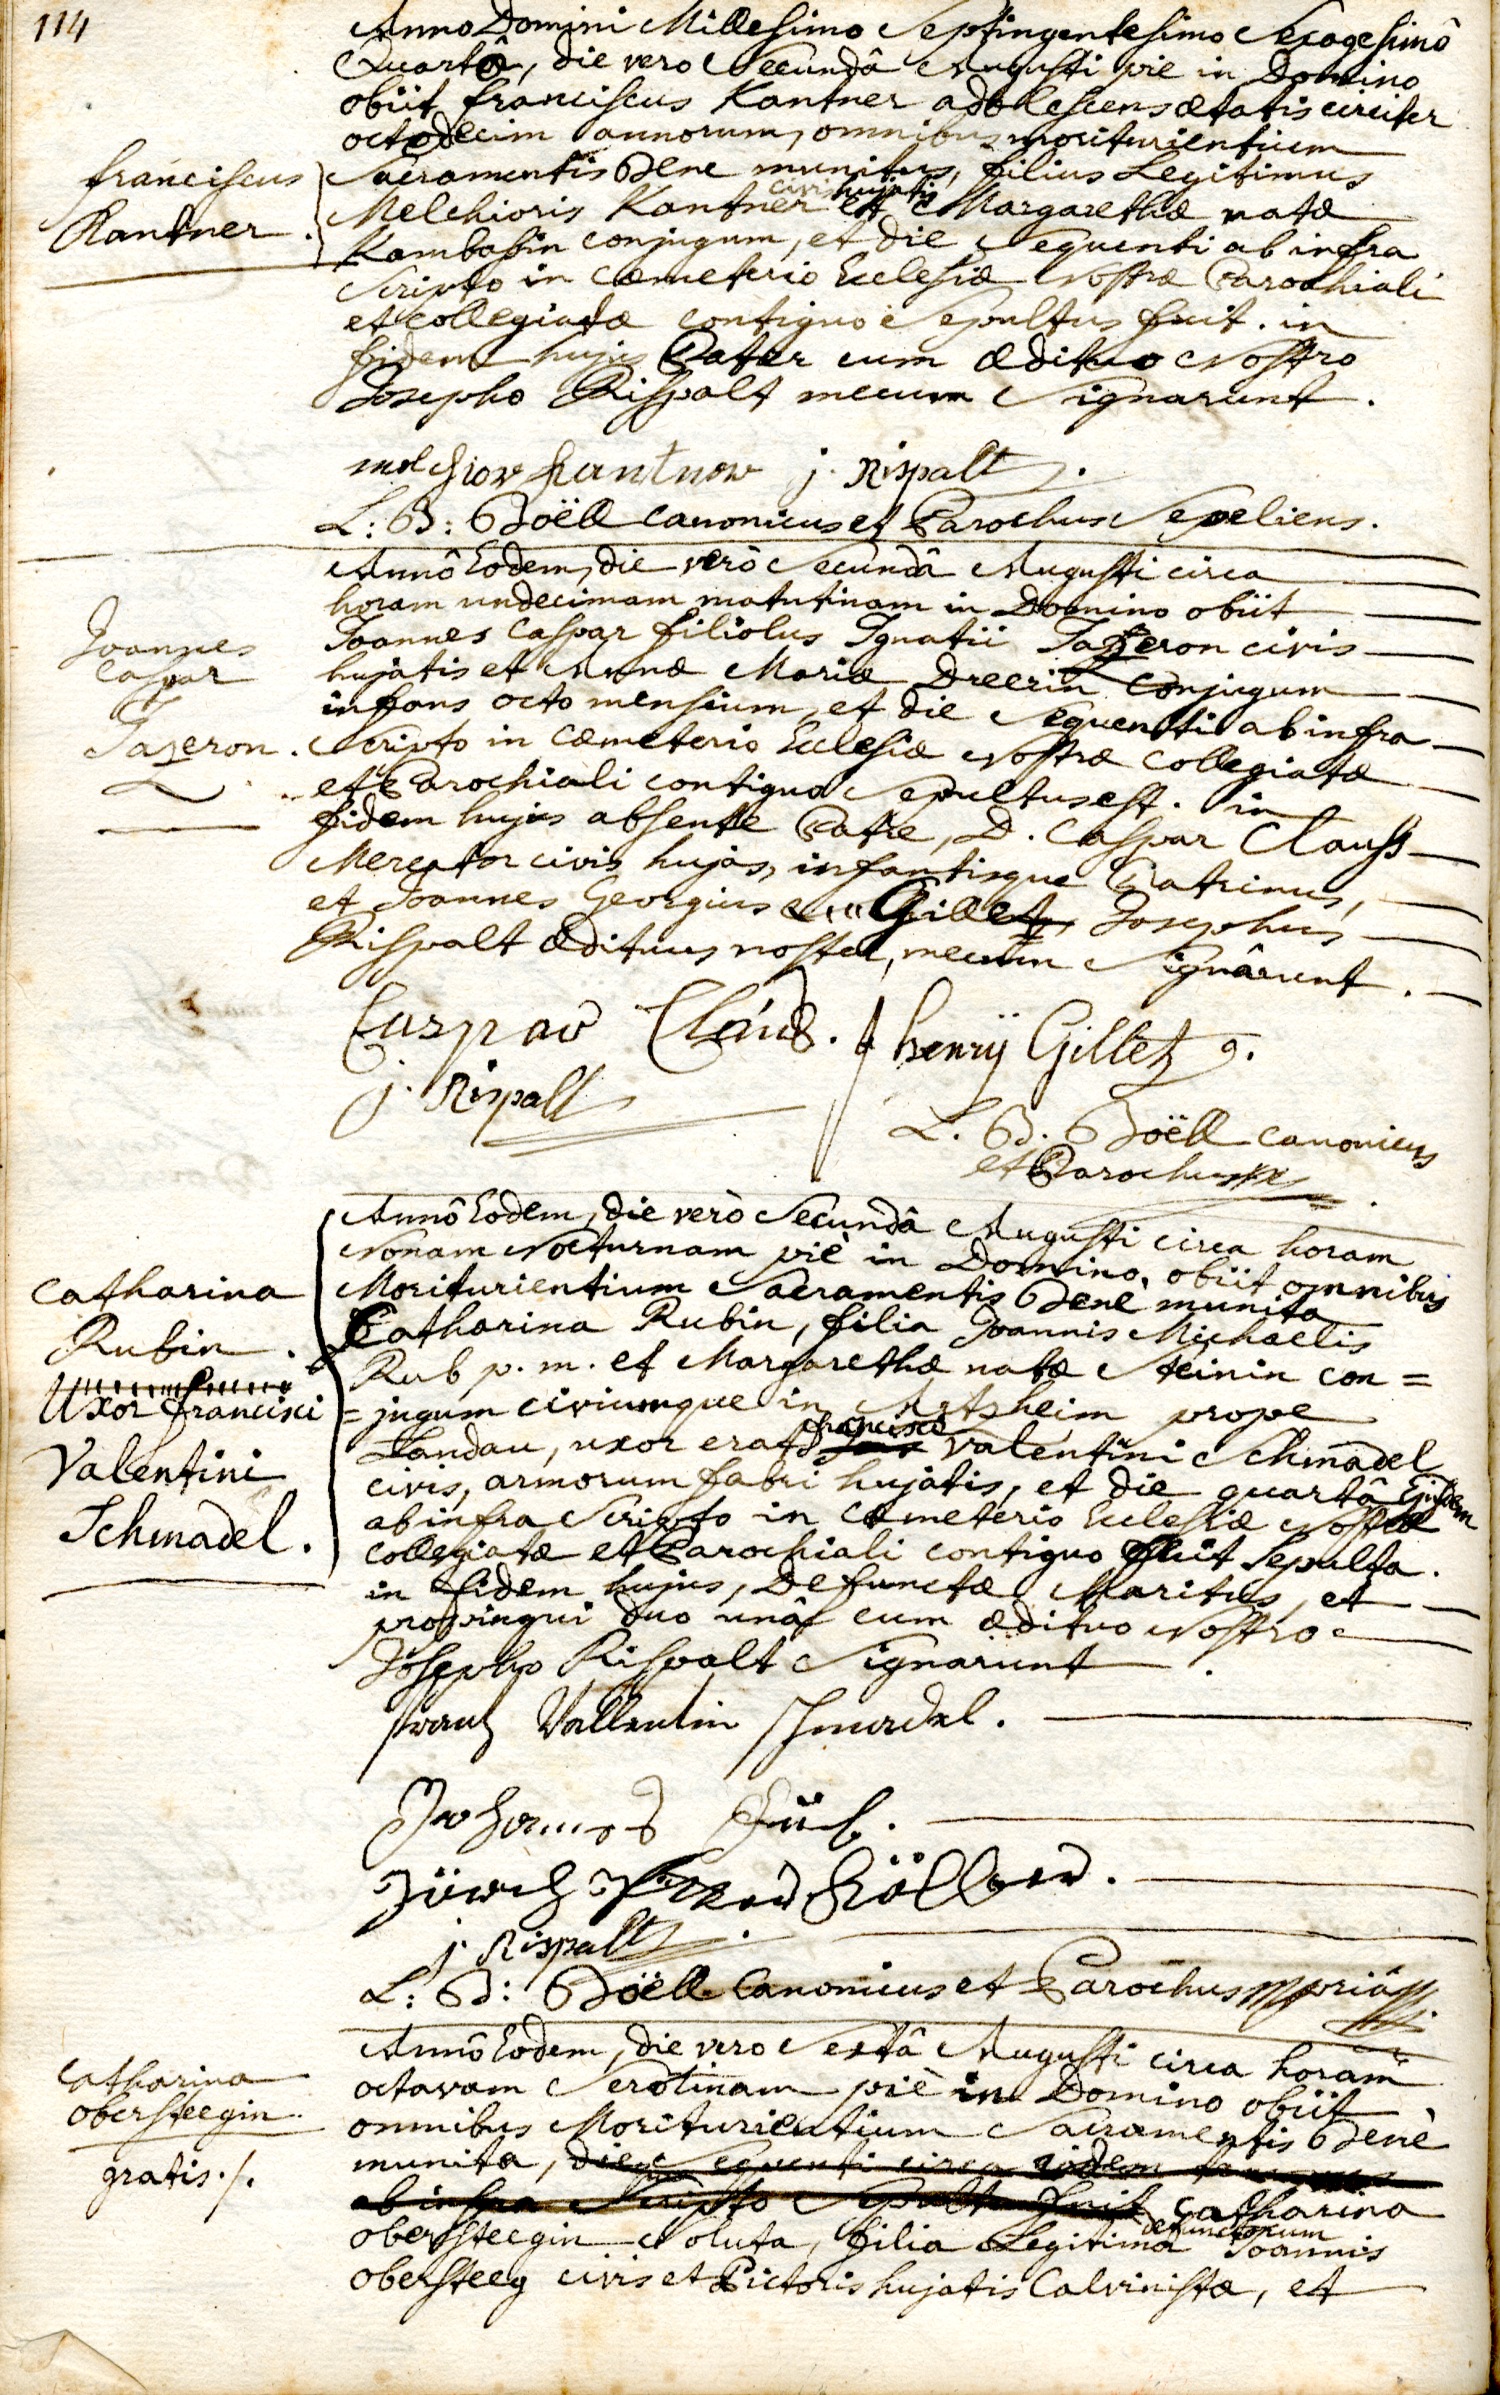 114
Anno Domini Millesimo Septingentesimo Sexagesimô
Quartô, die vero Secundâ Augusti pie in Domino
obiit franciscus Kantner adolescens ætatis circiter
octodecim annorum, omnibus moriturientium
franciscus
Kantner.
Sacramentis bene munitus, filius Legitimus
civis hujatis
Melchioris Kantner et Margarethæ natæ
conjugum, et die Sequenti ab infra
Scripto in Cœmeterio Ecclesiæ Nostræ Parochiali
et Collegiatæ contiguo Sepultus fuit. in
fidem hujus Pater cum ædituo Nostro
Josepho Rispalt mecum Signarunt.
j. Rispalt.
L: B: Boëll Canonicus et Parochus Sepeliens.
Annô Eodem, die verò Secundâ Augusti circa
horam undecimam matutinam in Domino obiit
Joannes
Caspar
Tazeron.
Joannes Caspar filiolus Ignatii Tazeron civis
hujatis et Annæ Mariæ Dreerin Conjugum
infans octo mensium, et die Sequenti ab infra
Scripto in Cœmeterio Ecclesiæ Nostræ Collegiatæ
et Parochiali contiguo Sepultus est. in
fidem hujus absente Patre, D. Caspar Clauss
Mercator civis hujas, infantisque Patrinus,
et Joannes Georgius Gillet, Josephus
Rispalt ædituus noster, mecum Signârunt.
Caspar Claus.
henrÿ Gillet
j. Rispalt
L. B. Boëll Canonicus
et Parochus
Annô Eodem, die verò Secundâ Augusti circa horam
Nonam Nocturnam piè in Domino obiit omnibus
Catharina
Rubin.
Uxor francisci
Valentini
Schmadel.
Moriturientium Sacramentis bene munita
Catharina Rubin, filia Joannis Michaelis
Rub p. m. et Margarethæ natæ Steinin con=
=jugum civiumque in Artzheim prope
francisci
Landau, uxor erat Valentini Schmadel
civis, armorum fabri hujatis, et die quartâ Ejusdem
ab infra Scripto in Cœmeterio Ecclesiæ Nostræ
Collegiatæ et Parochiali contiguo fuit Sepulta.
in fidem hujus, Defunctæ Maritus, et
propinqui duo unâ cum ædituo Nostro
Josepho Rispalt Signarunt.
frantz Vallentin Schmadel.
Johannes
j. Rispalt.
L: B: Boëll Canonicus et Parochus mpriâ
Annô Eodem, die vero Sextâ Augusti circa horam
octavam Serotinam piè in Domino obiit
Catharina
obersteegin.
gratis./.
omnibus Moriturientium Sacramentis bene
munita, die Sequenti circa
ab infra Scripto Sepulta fuit Catharina
defunctorum
obersteegin Soluta, filia Legitima Joannis
obersteeg civis et Pictoris hujatis Calvinistæ, et